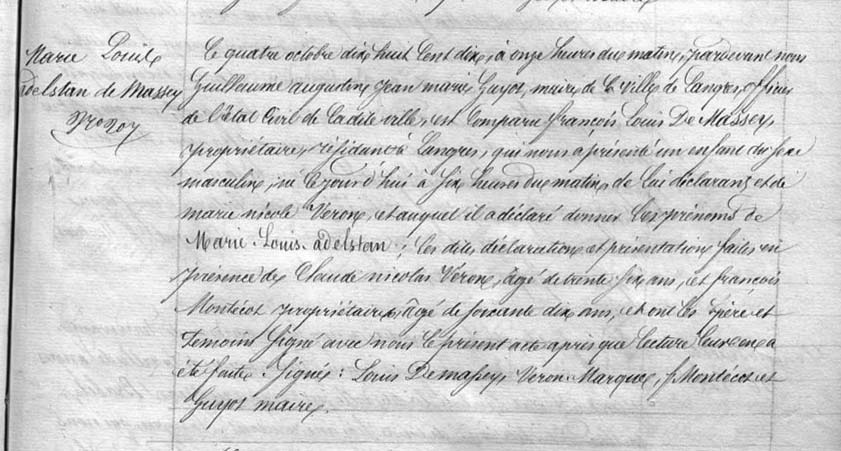 Marie Louis
adelstan de Massey
Le quatre octobre dix huit Cent dix, à onze heures du matin, pardevant nous
Guillaume augustin Jean marie Guyot, maire de la ville de Langres, officier
de l'état Civil de Ladite ville, est Comparu françois Louis De Massey,
propriétaire, résidant à Langres, qui nous a présenté un enfant du sexe
masculin, né Le jour d'hui à six heures du matin, de Lui déclarant et de
marie nicole Veron, et auquel il a déclaré donner Les prénoms de
Marie-Louis-adelstan ; Les dites déclaration et présentation faites en
présence de Claude nicolas Véron, âgé de trente six ans, et françois
Montécot propriétaire, âgé de soixante dix ans, et ont les père et
Temoins Signé avec nous Le présent acte après que Lecture Leur en a
été faite. Signés : Louis Demassey, Veron-Marque, f Montécot et
Guyot maire.